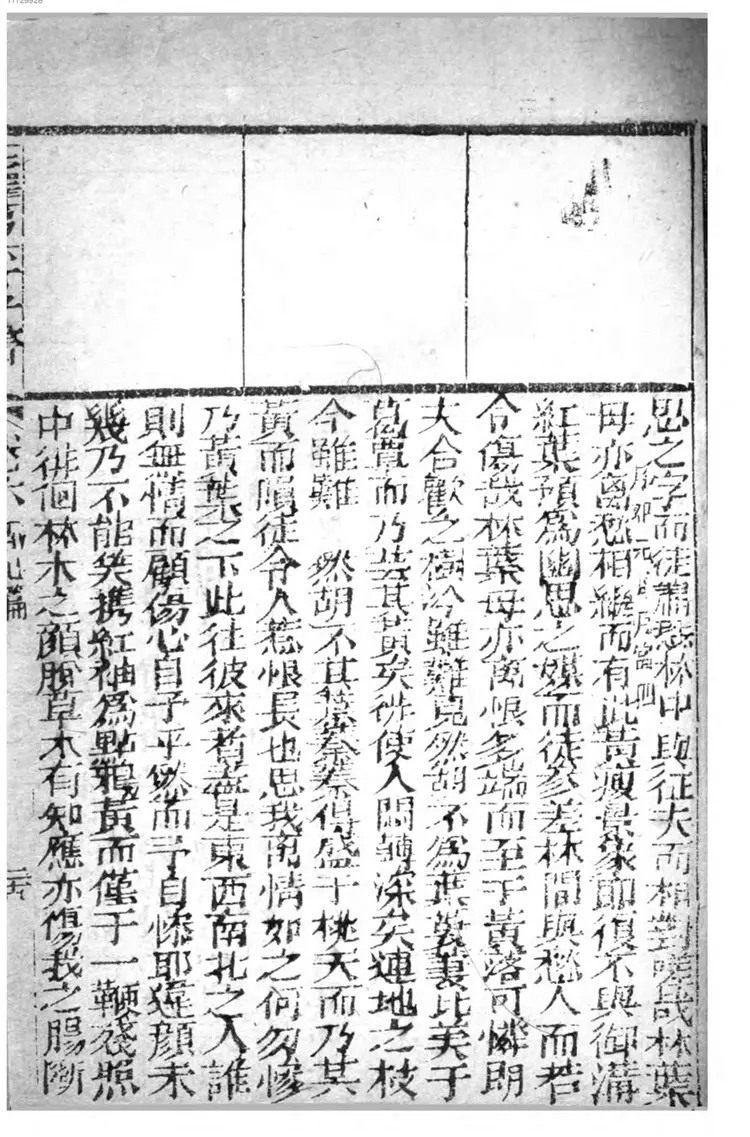 思之字而徒蕭瑟林中與征夫而相對嗟哉林葉
毋亦离愁相繼而有此黄瘦景象即復不與御溝
紅葉預爲幽思之媒而徒參差林間與愁人而若
令傷哉林葉毋亦离恨多端而至于黄落可憐朗
大合歡之樹今雖難見然胡不爲葉萋萋比美于
葛覃而乃芸其黄矣徒使人悶轉深矣連地之枝
今雖難 然胡不其葉蓁蓁得盛于桃夭而乃其
黄而隕徒令人惹恨長也思我离情如之何勿慘
乃黄葉之下此往彼來者盡是東西南北之人誰
則無情而顧傷心自予乎然而予自慘耶違顔未
幾乃不能矣携紅袖爲點鴉黄而僅于一鞭殘照
中徘徊林木之顔脫草木有知應亦傷我之腸斷